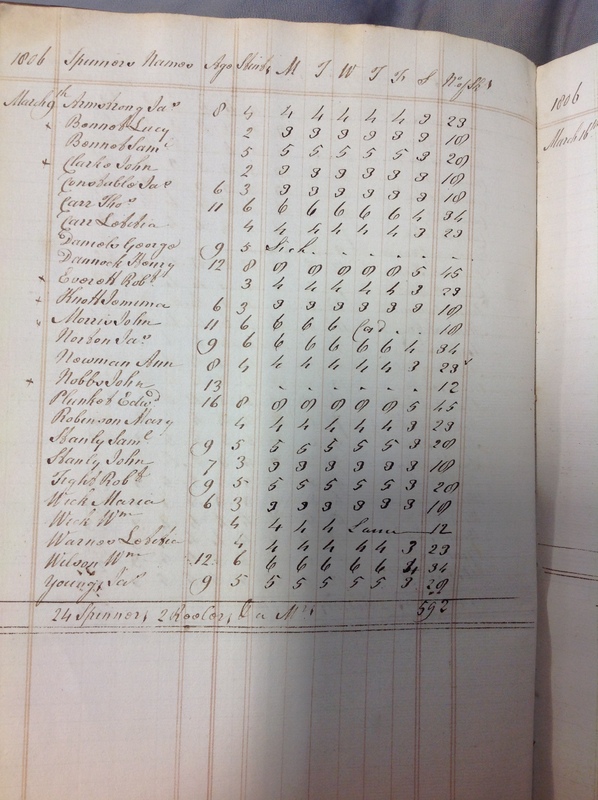 1806 Spinners Names Age Stint M T W T F S No of Sk.s
March 9th Armstrong Jas 8 4 4 4 4 4 4 3 23
Bennet Lucy 2 3 3 3 3 3 3 18
Bennet Saml 5 5 5 5 5 5 3 28
Clarke John 2 3 3 3 3 3 3 18
Constable Jas 6 3 3 3 3 3 3 3 18
Carr Thos 11 6 6 6 6 6 6 4 34
Carr Letitia 4 4 4 4 4 4 3 23
Daniels George 9 5 Sick . . . . .
Dannock Henry 12 8 8 8 8 8 8 5 45
Everett Robt 3 4 4 4 4 4 3 23
Knott Jemima 6 3 3 3 3 3 3 3 18
Morris John 11 6 6 6 6 . . 18
Norton Jas 9 6 6 6 6 6 6 4 34
Newman Ann 8 4 4 4 4 4 4 3 23
Nobbs John 13 . . . . . . 12
Plunket Edwd 16 8 8 8 8 8 8 5 45
Robinson Mary 4 4 4 4 4 4 3 23
Stanly Saml 9 5 5 5 5 5 5 3 28
Stanly John 7 3 3 3 3 3 3 3 18
Tight Robt 9 5 5 5 5 5 5 3 28
Wick Maria 6 3 3 3 3 3 3 3 18
Wick Wm 4 4 4 4 Lame 12
Warnes Letitia 4 4 4 4 4 4 3 23
Wilson Wm 12 6 6 6 6 6 6 4 34
Young Jas 9 5 5 5 5 5 5 3 28
24 Spinners 2 Reelers & a Mrs 592
1806
March 16th